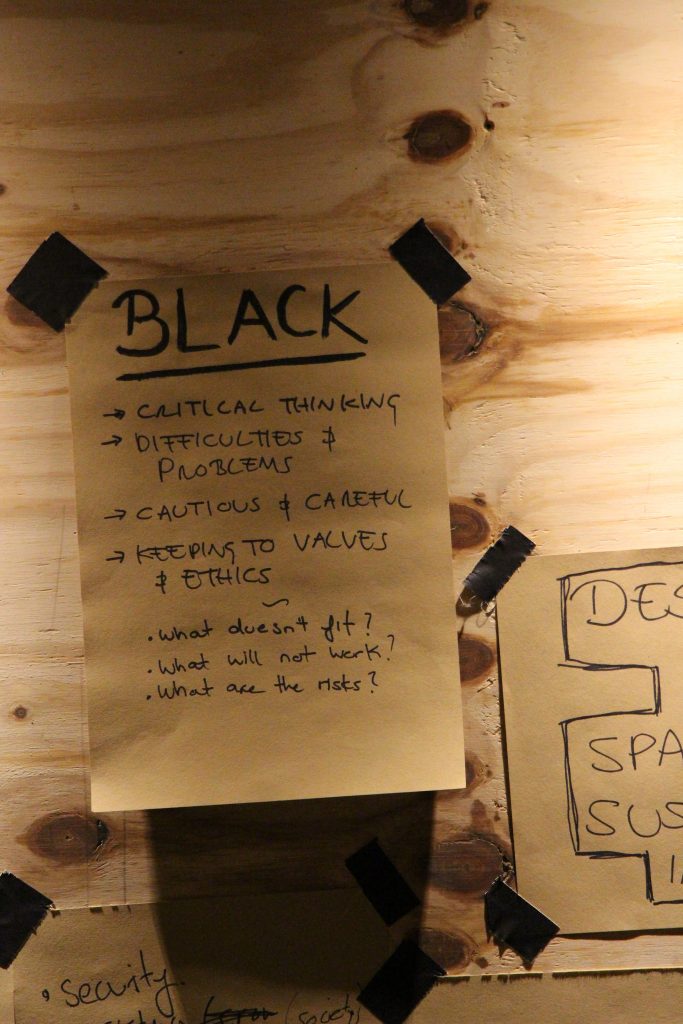 BLACK
→ CRITICAL THINKING
→ DIFFICULTIES &
PROBLEMS
→ CAUTIOUS & CAREFUL
→ KEEPING TO VALUES
& ETHICS
~
. what doesn't fit?
. What will not work?
. What are the risks?
DES
SPA
SUS
• security.
(society)